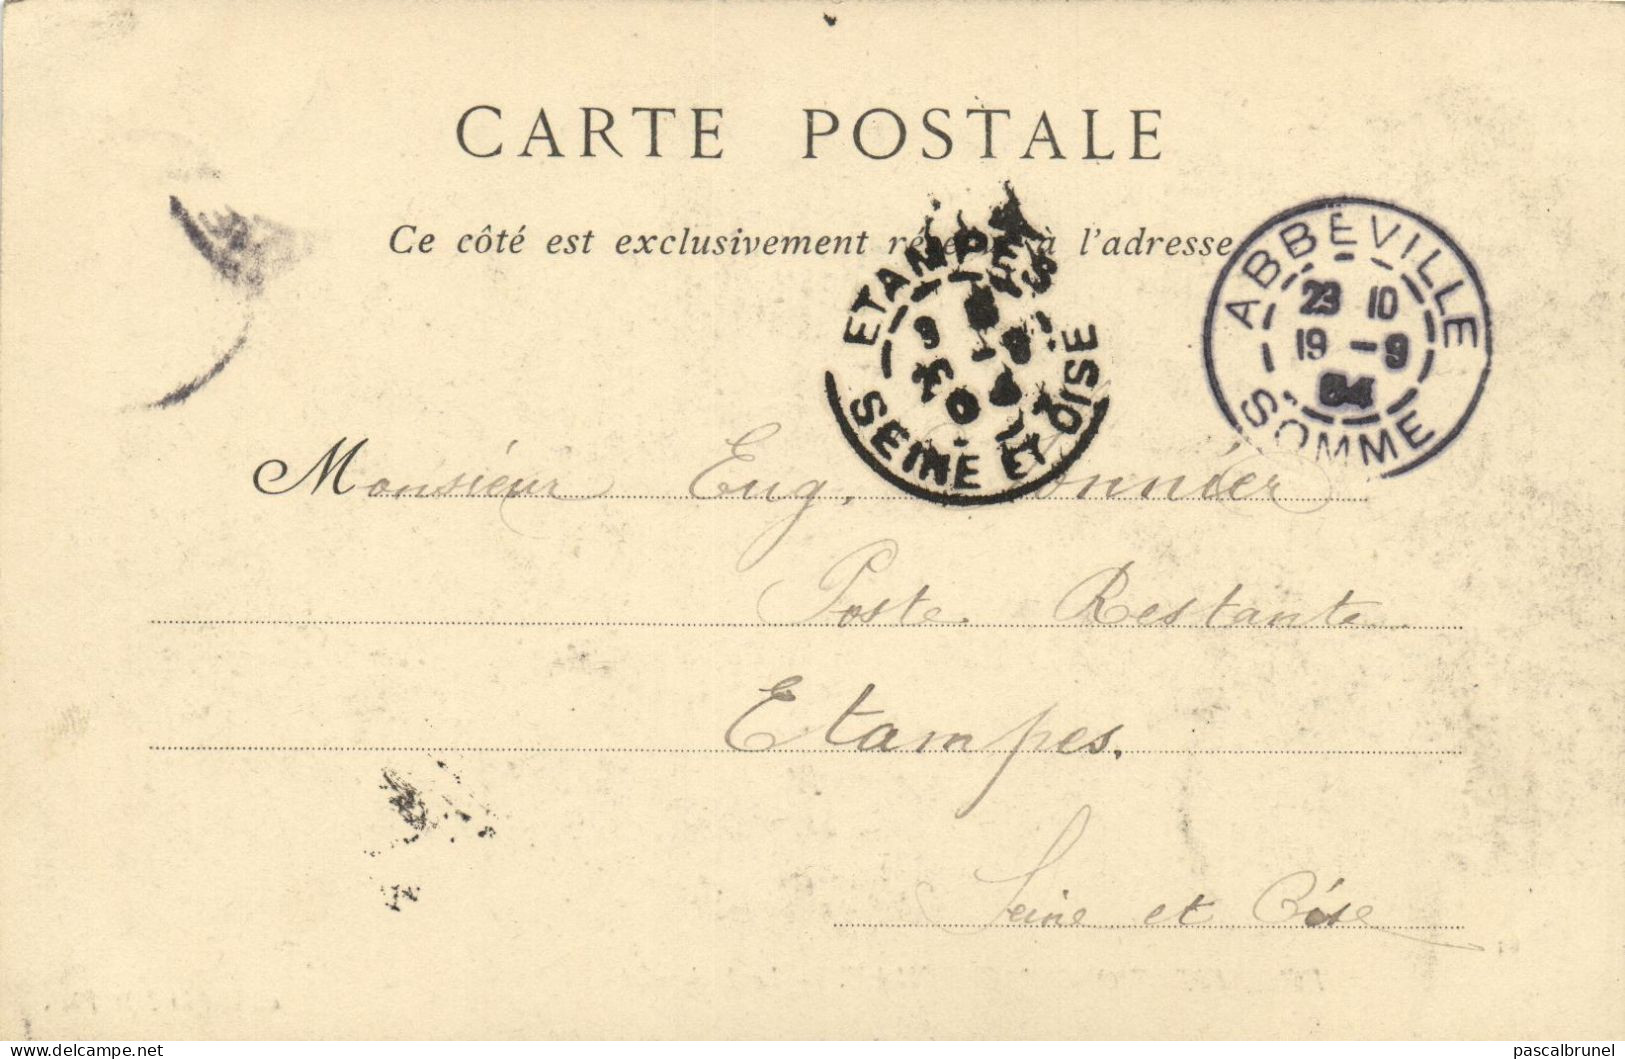 CARTE POSTALE
Ce côté est exclusivement à l'adresse
ETAMPES
SEINE ET OISE
ABBEVILLE
23 10
19 -9
04
SOMME
Monsieur Eug.
Poste Restante
Etampes.
Seine et Oise
www.delcampe.net
pascalbrunel